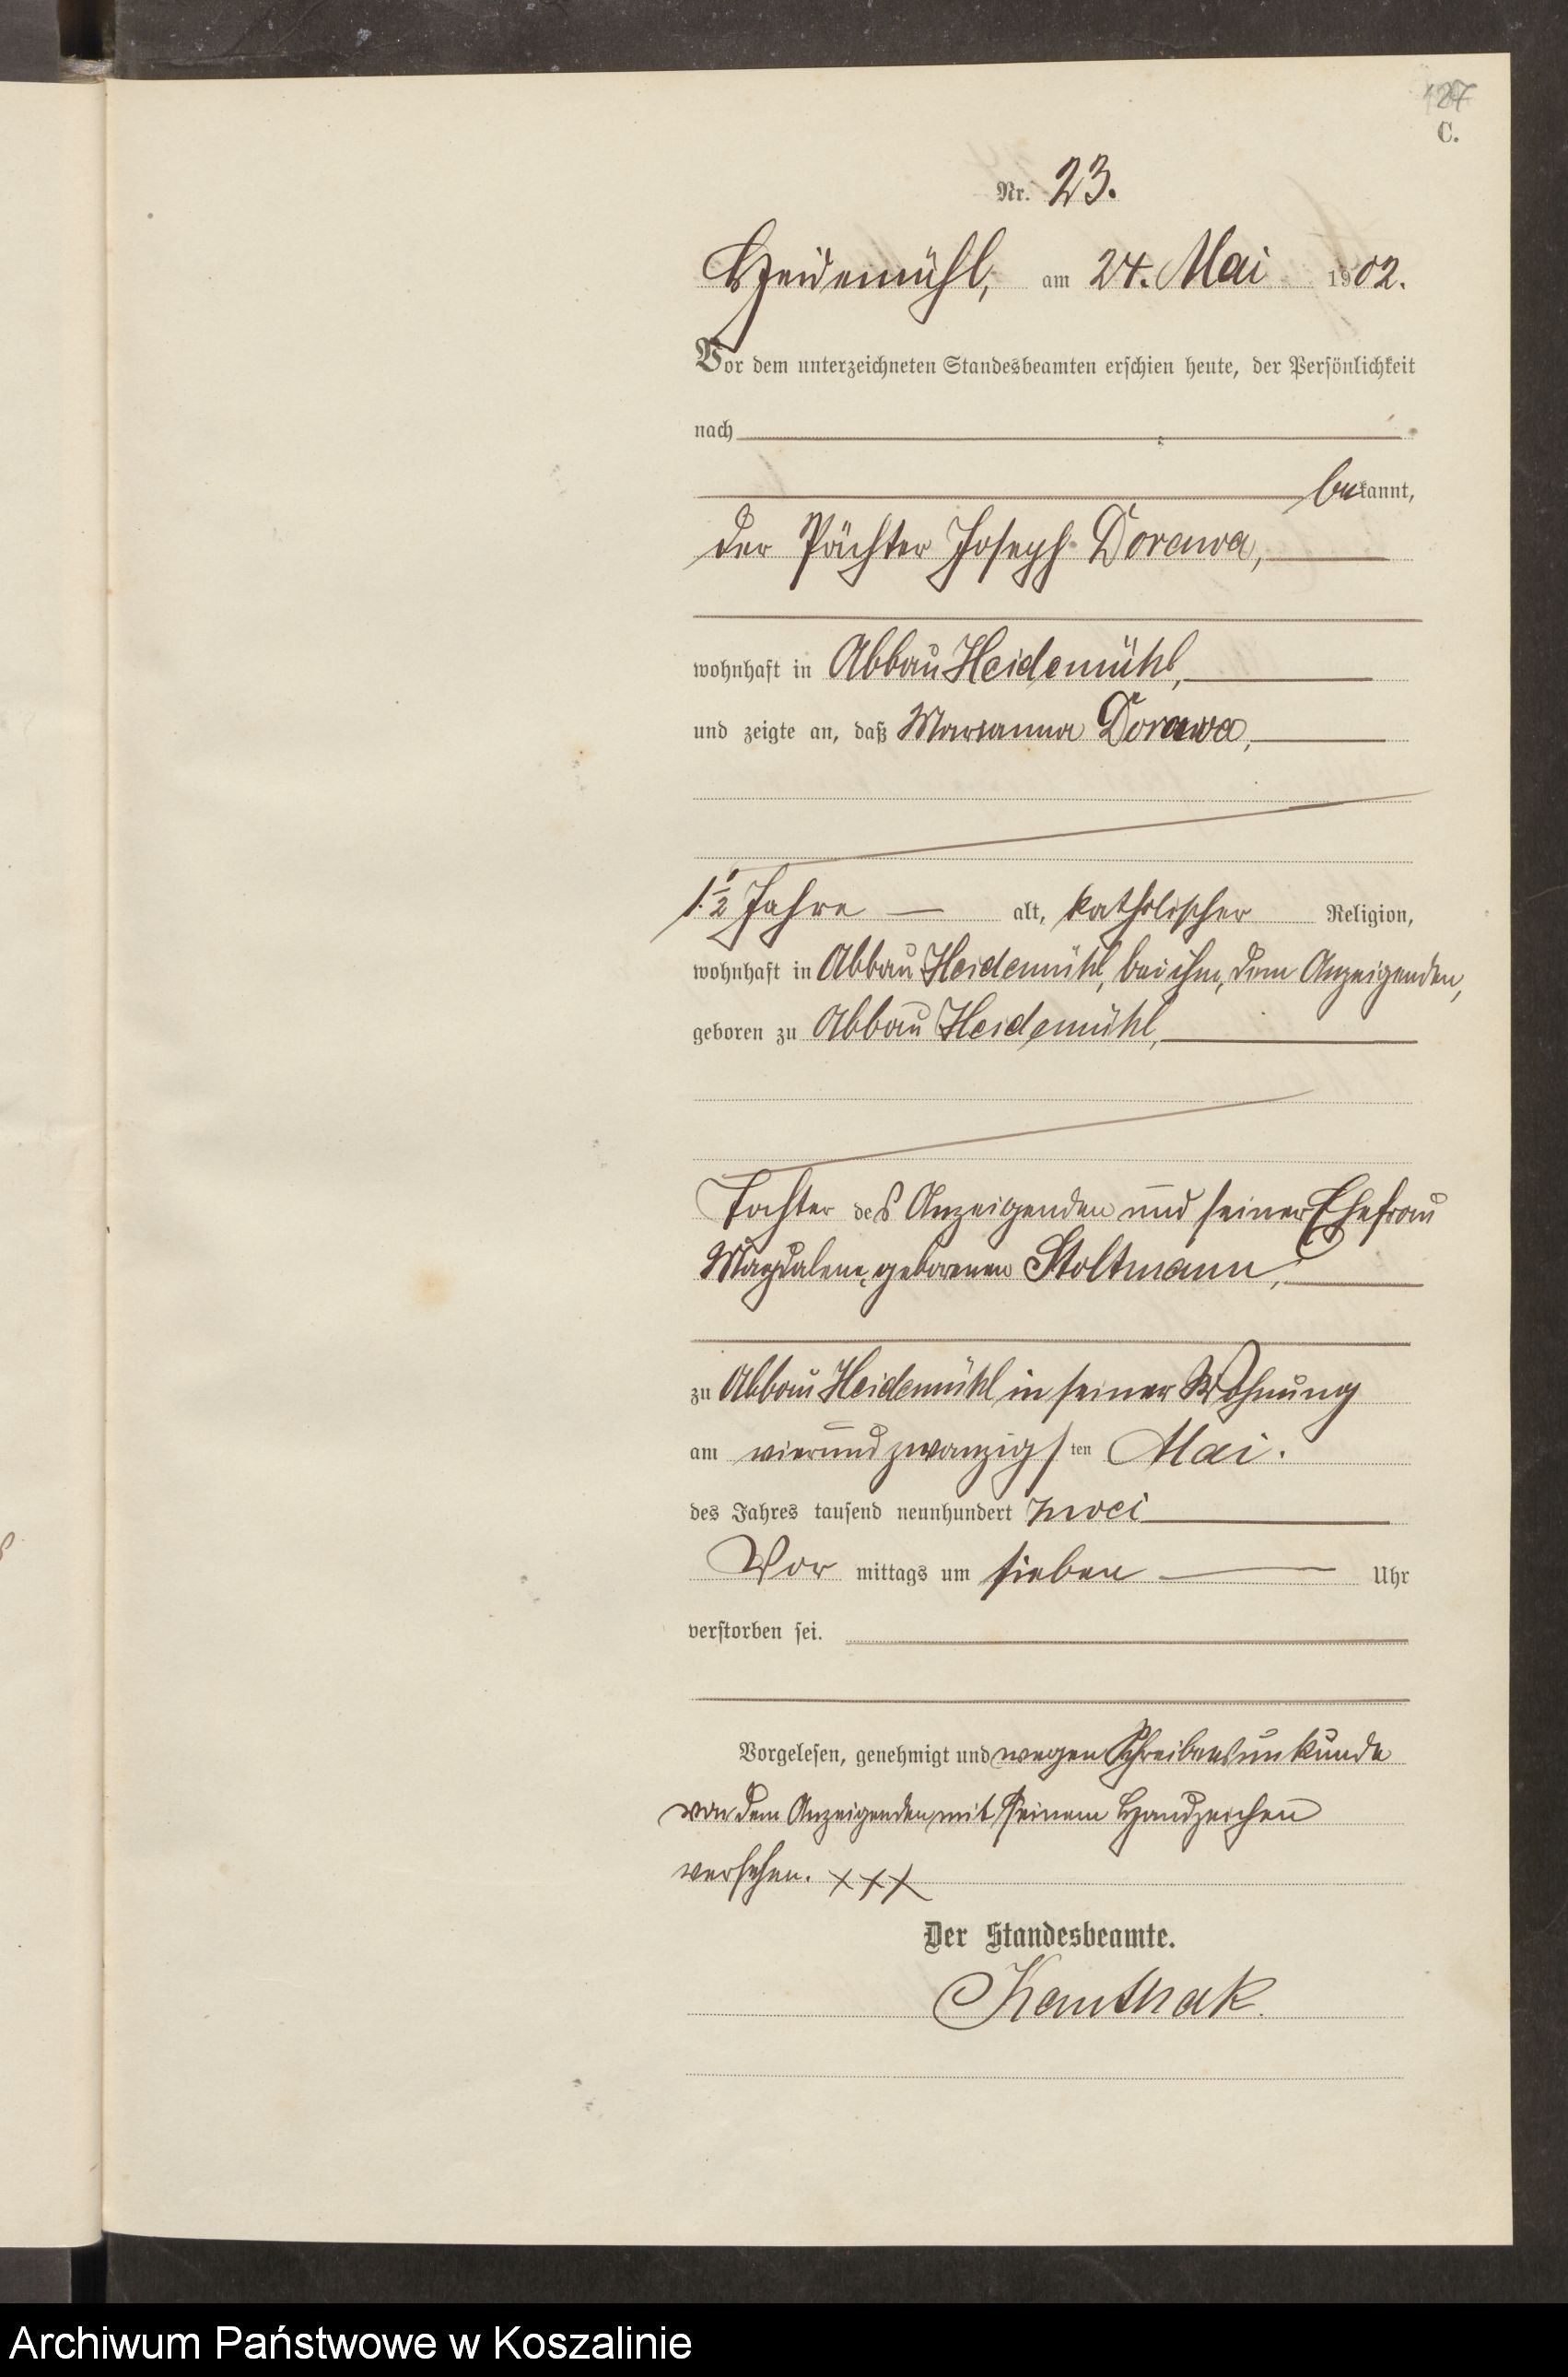 127
C.
Nr. 23.
Heidemühl, am 24. Mai 1902.
Vor dem unterzeichneten Standesbeamten erschien heute, der Persönlichkeit
nach
bekannt,
der Pächter Joseph Dorawa,
wohnhaft in Abbau Heidemühl,
und zeigte an, daß Marianna Dorawa,
1 1/2 Jahre — alt, katholischer Religion,
wohnhaft in Abbau Heidemühl, bei ihm, dem Anzeigenden,
geboren zu Abbau Heidemühl,
Tochter des Anzeigenden und seiner Ehefrau
Magdalene, geborenen Stoltmann,
zu Abbau Heidemühl in seiner Wohnung
am vierundzwanzigsten Mai.
des Jahres tausend neunhundert zwei
Vor mittags um sieben Uhr
verstorben sei.
Vorgelesen, genehmigt und wegen Schreibensunkunde
von dem Anzeigenden mit seinem Handzeichen
versehen. XXX
Der Standesbeamte.
Archiwum Państwowe w Koszalinie